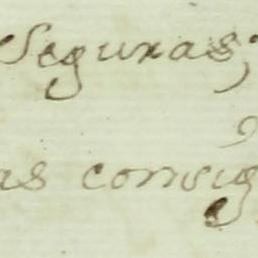 Seguras;
as consig